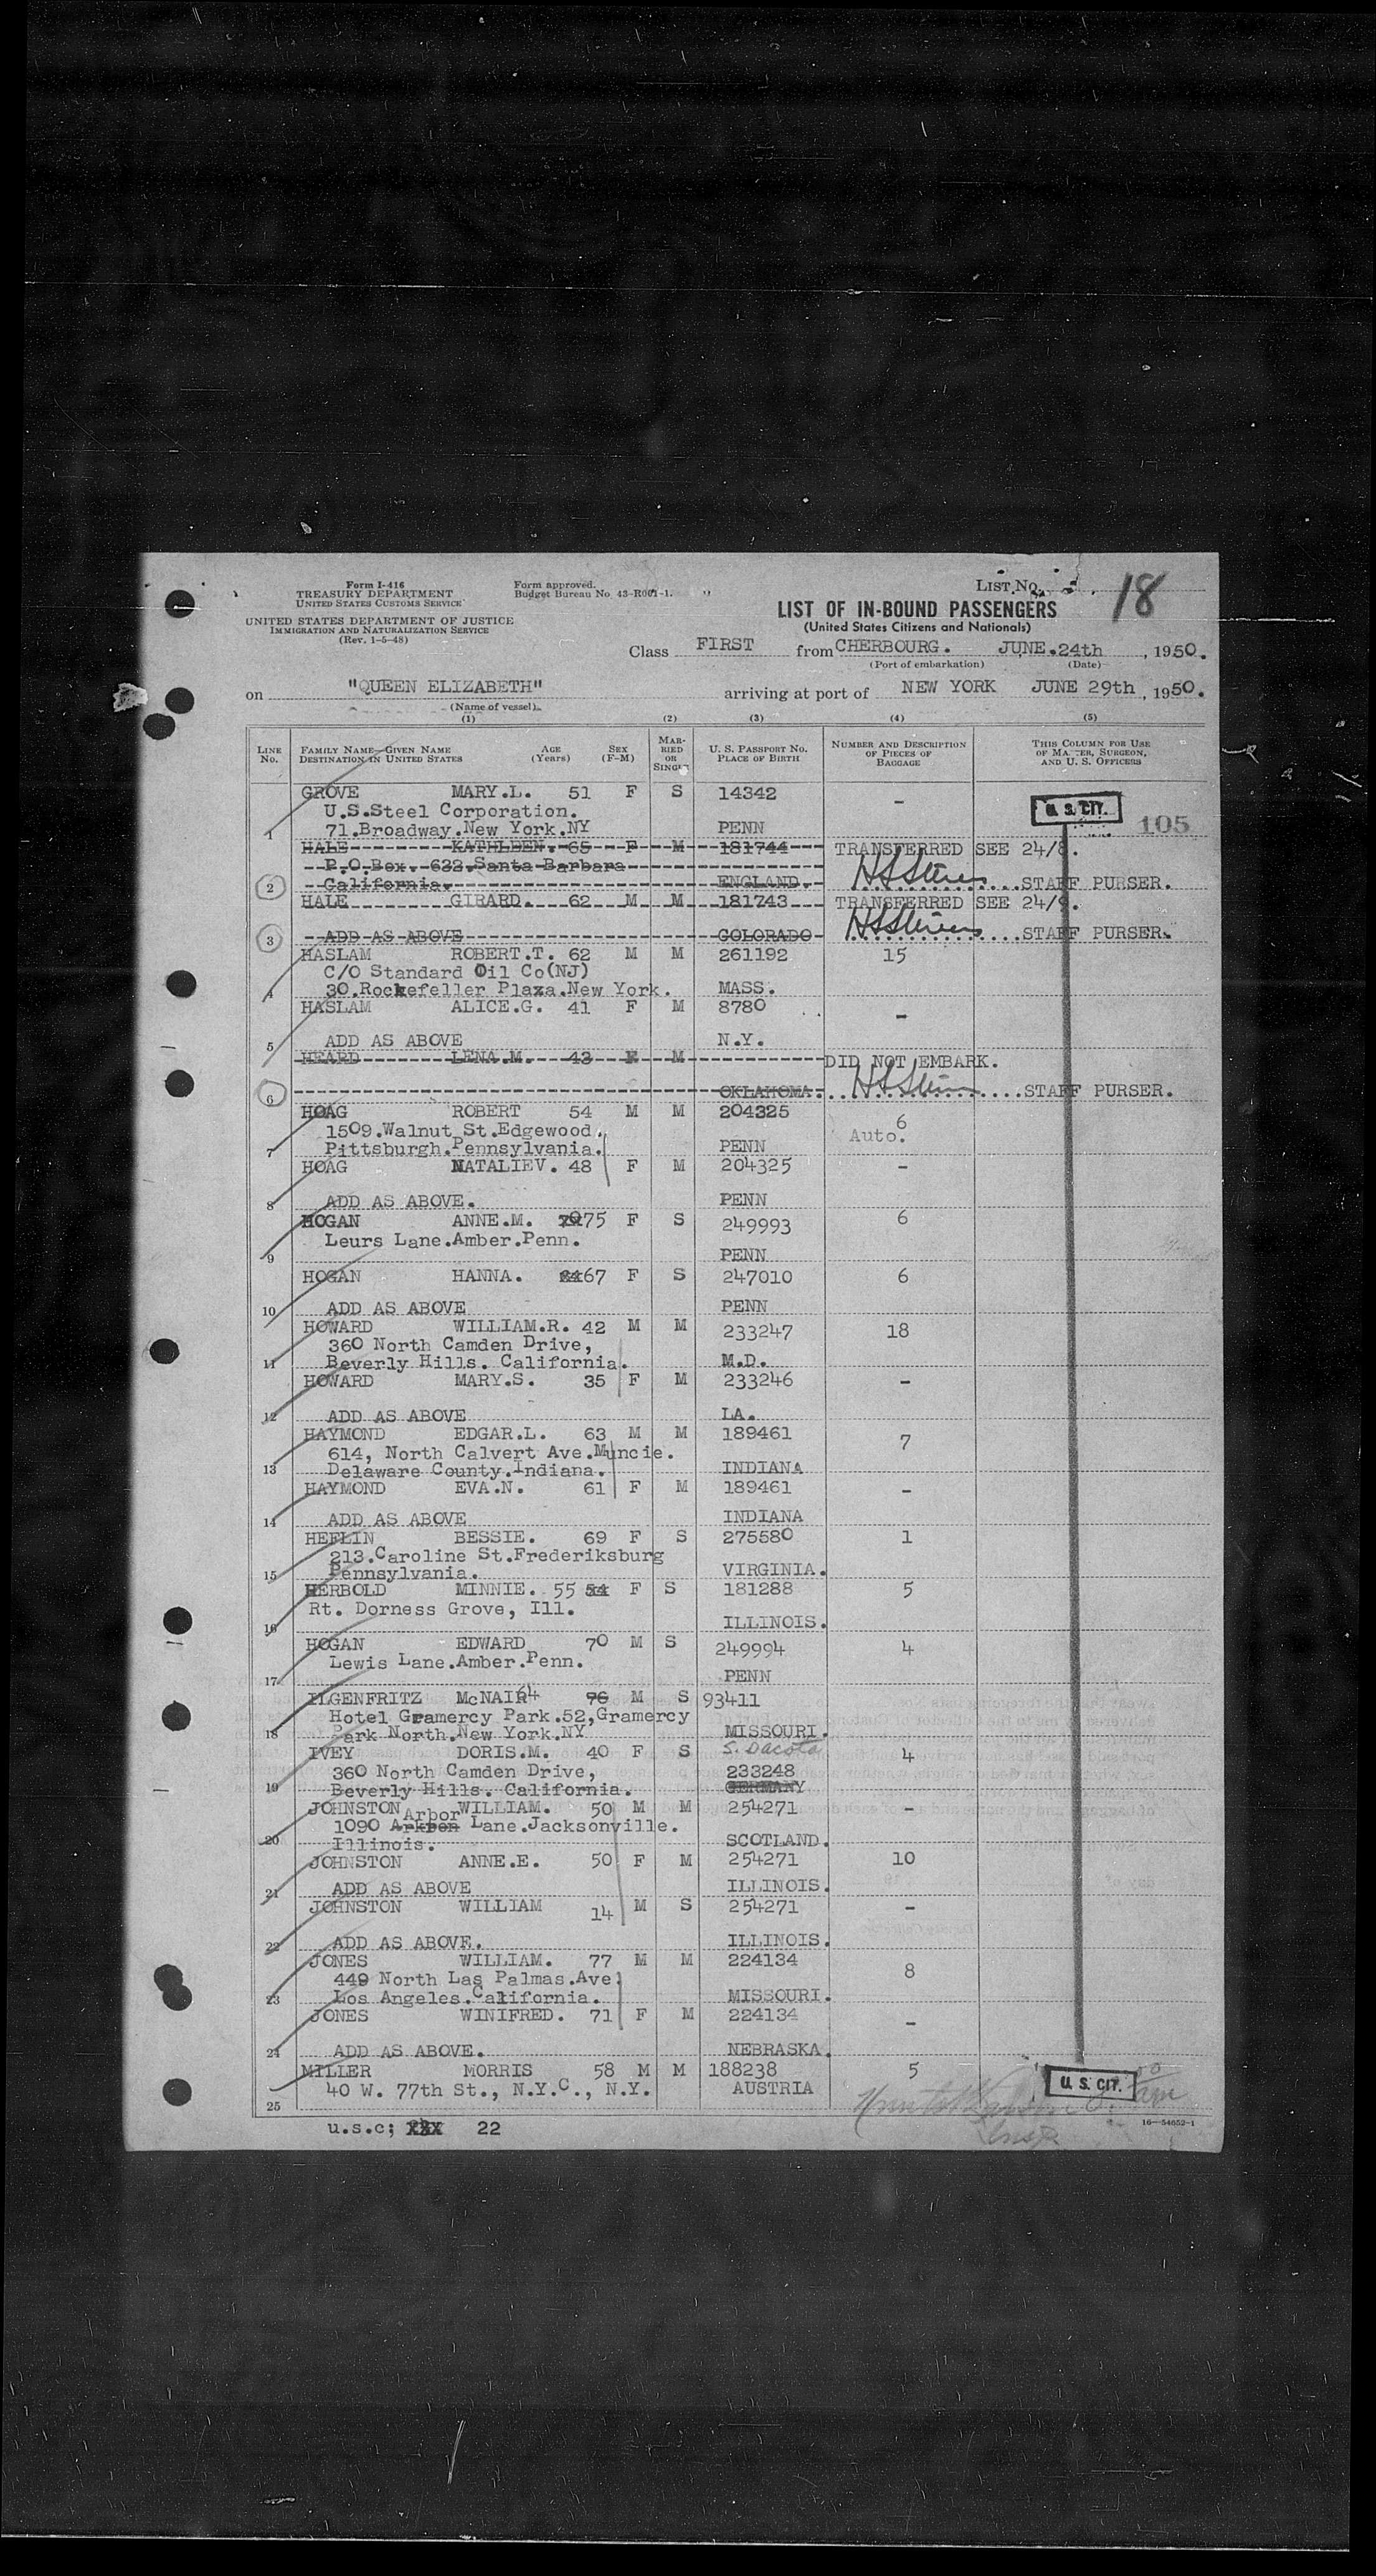 Form I-416
TREASURY DEPARTMENT
UNITED STATES CUSTOMS SERVICE
UNITED STATES DEPARTMENT OF JUSTICE
IMMIGRATION AND NATURALIZATION SERVICE
(Rev. 1-5-48)
Form approved.
Budget Bureau No. 43-R001-1.
LIST No. 18
LIST OF IN-BOUND PASSENGERS
(United States Citizens and Nationals)
Class FIRST from CHERBOURG. JUNE.24th, 1950.
(Port of embarkation) (Date)
on "QUEEN ELIZABETH" arriving at port of NEW YORK JUNE 29th, 1950.
(Name of vessel)
(1) (2) (3) (4) (5)
LINE No. FAMILY NAME—GIVEN NAME DESTINATION IN UNITED STATES AGE (Years) SEX (F-M) MARRIED OR SINGLE U. S. PASSPORT No. PLACE OF BIRTH NUMBER AND DESCRIPTION OF PIECES OF BAGGAGE THIS COLUMN FOR USE OF MASTER, SURGEON, AND U. S. OFFICERS
GROVE MARY.L. 51 F S 14342 - U. S. CIT.
U.S.Steel Corporation.
1 71.Broadway.New York.NY PENN 105
HALE KATHLEEN. 65 F M 181744 TRANSFERRED SEE 24/8.
P.O.Box. 622.Santa Barbara
2 California. ENGLAND. STAFF PURSER.
HALE GIRARD. 62 M M 181743 TRANSFERRED SEE 24/9.
3 ADD AS ABOVE COLORADO STAFF PURSER.
HASLAM ROBERT.T. 62 M M 261192 15
C/O Standard Oil Co(NJ)
4 30.Rockefeller Plaza.New York. MASS.
HASLAM ALICE.G. 41 F M 8780 -
5 ADD AS ABOVE N.Y.
HEARD LENA.M. 43 F M DID NOT EMBARK.
6 OKLAHOMA. STAFF PURSER.
HOAG ROBERT 54 M M 204325 6
1509.Walnut St.Edgewood. Auto.
7 Pittsburgh.Pennsylvania. PENN
HOAG NATALIEV. 48 F M 204325 -
8 ADD AS ABOVE. PENN
HOGAN ANNE.M. 75 F S 249993 6
Leurs Lane.Amber.Penn.
9 PENN
HOGAN HANNA. 67 F S 247010 6
10 ADD AS ABOVE PENN
HOWARD WILLIAM.R. 42 M M 233247 18
360 North Camden Drive,
11 Beverly Hills. California. M.D.
HOWARD MARY.S. 35 F M 233246 -
12 ADD AS ABOVE LA.
HAYMOND EDGAR.L. 63 M M 189461 7
614, North Calvert Ave.Muncie.
13 Delaware County.Indiana. INDIANA
HAYMOND EVA.N. 61 F M 189461 -
14 ADD AS ABOVE INDIANA
HEFLIN BESSIE. 69 F S 275580 1
213.Caroline St.Frederiksburg
15 Pennsylvania. VIRGINIA.
HERBOLD MINNIE. 55 54 F S 181288 5
Rt. Dorness Grove, Ill.
16 ILLINOIS.
HOGAN EDWARD 70 M S 249994 4
Lewis Lane.Amber.Penn.
17 PENN
ILGENFRITZ McNAIR 64 76 M S 93411
Hotel Gramercy Park.52,Gramercy
18 Park North.New York.NY MISSOURI.
IVEY DORIS.M. 40 F S S. Dacota 4
360 North Camden Drive, 233248
19 Beverly Hills. California. GERMANY
JOHNSTON WILLIAM. 50 M M 254271 -
Arbor
1090 Lane.Jacksonville.
20 Illinois. SCOTLAND.
JOHNSTON ANNE.E. 50 F M 254271 10
21 ADD AS ABOVE ILLINOIS.
JOHNSTON WILLIAM 14 M S 254271 -
22 ADD AS ABOVE. ILLINOIS.
JONES WILLIAM. 77 M M 224134 8
449 North Las Palmas.Ave.
23 Los Angeles.California. MISSOURI.
JONES WINIFRED. 71 F M 224134 -
24 ADD AS ABOVE. NEBRASKA.
MILLER MORRIS 58 M M 188238 5 U. S. CIT.
40 W. 77th St., N.Y.C., N.Y. AUSTRIA
25
u.s.c; 22
16—54652-1